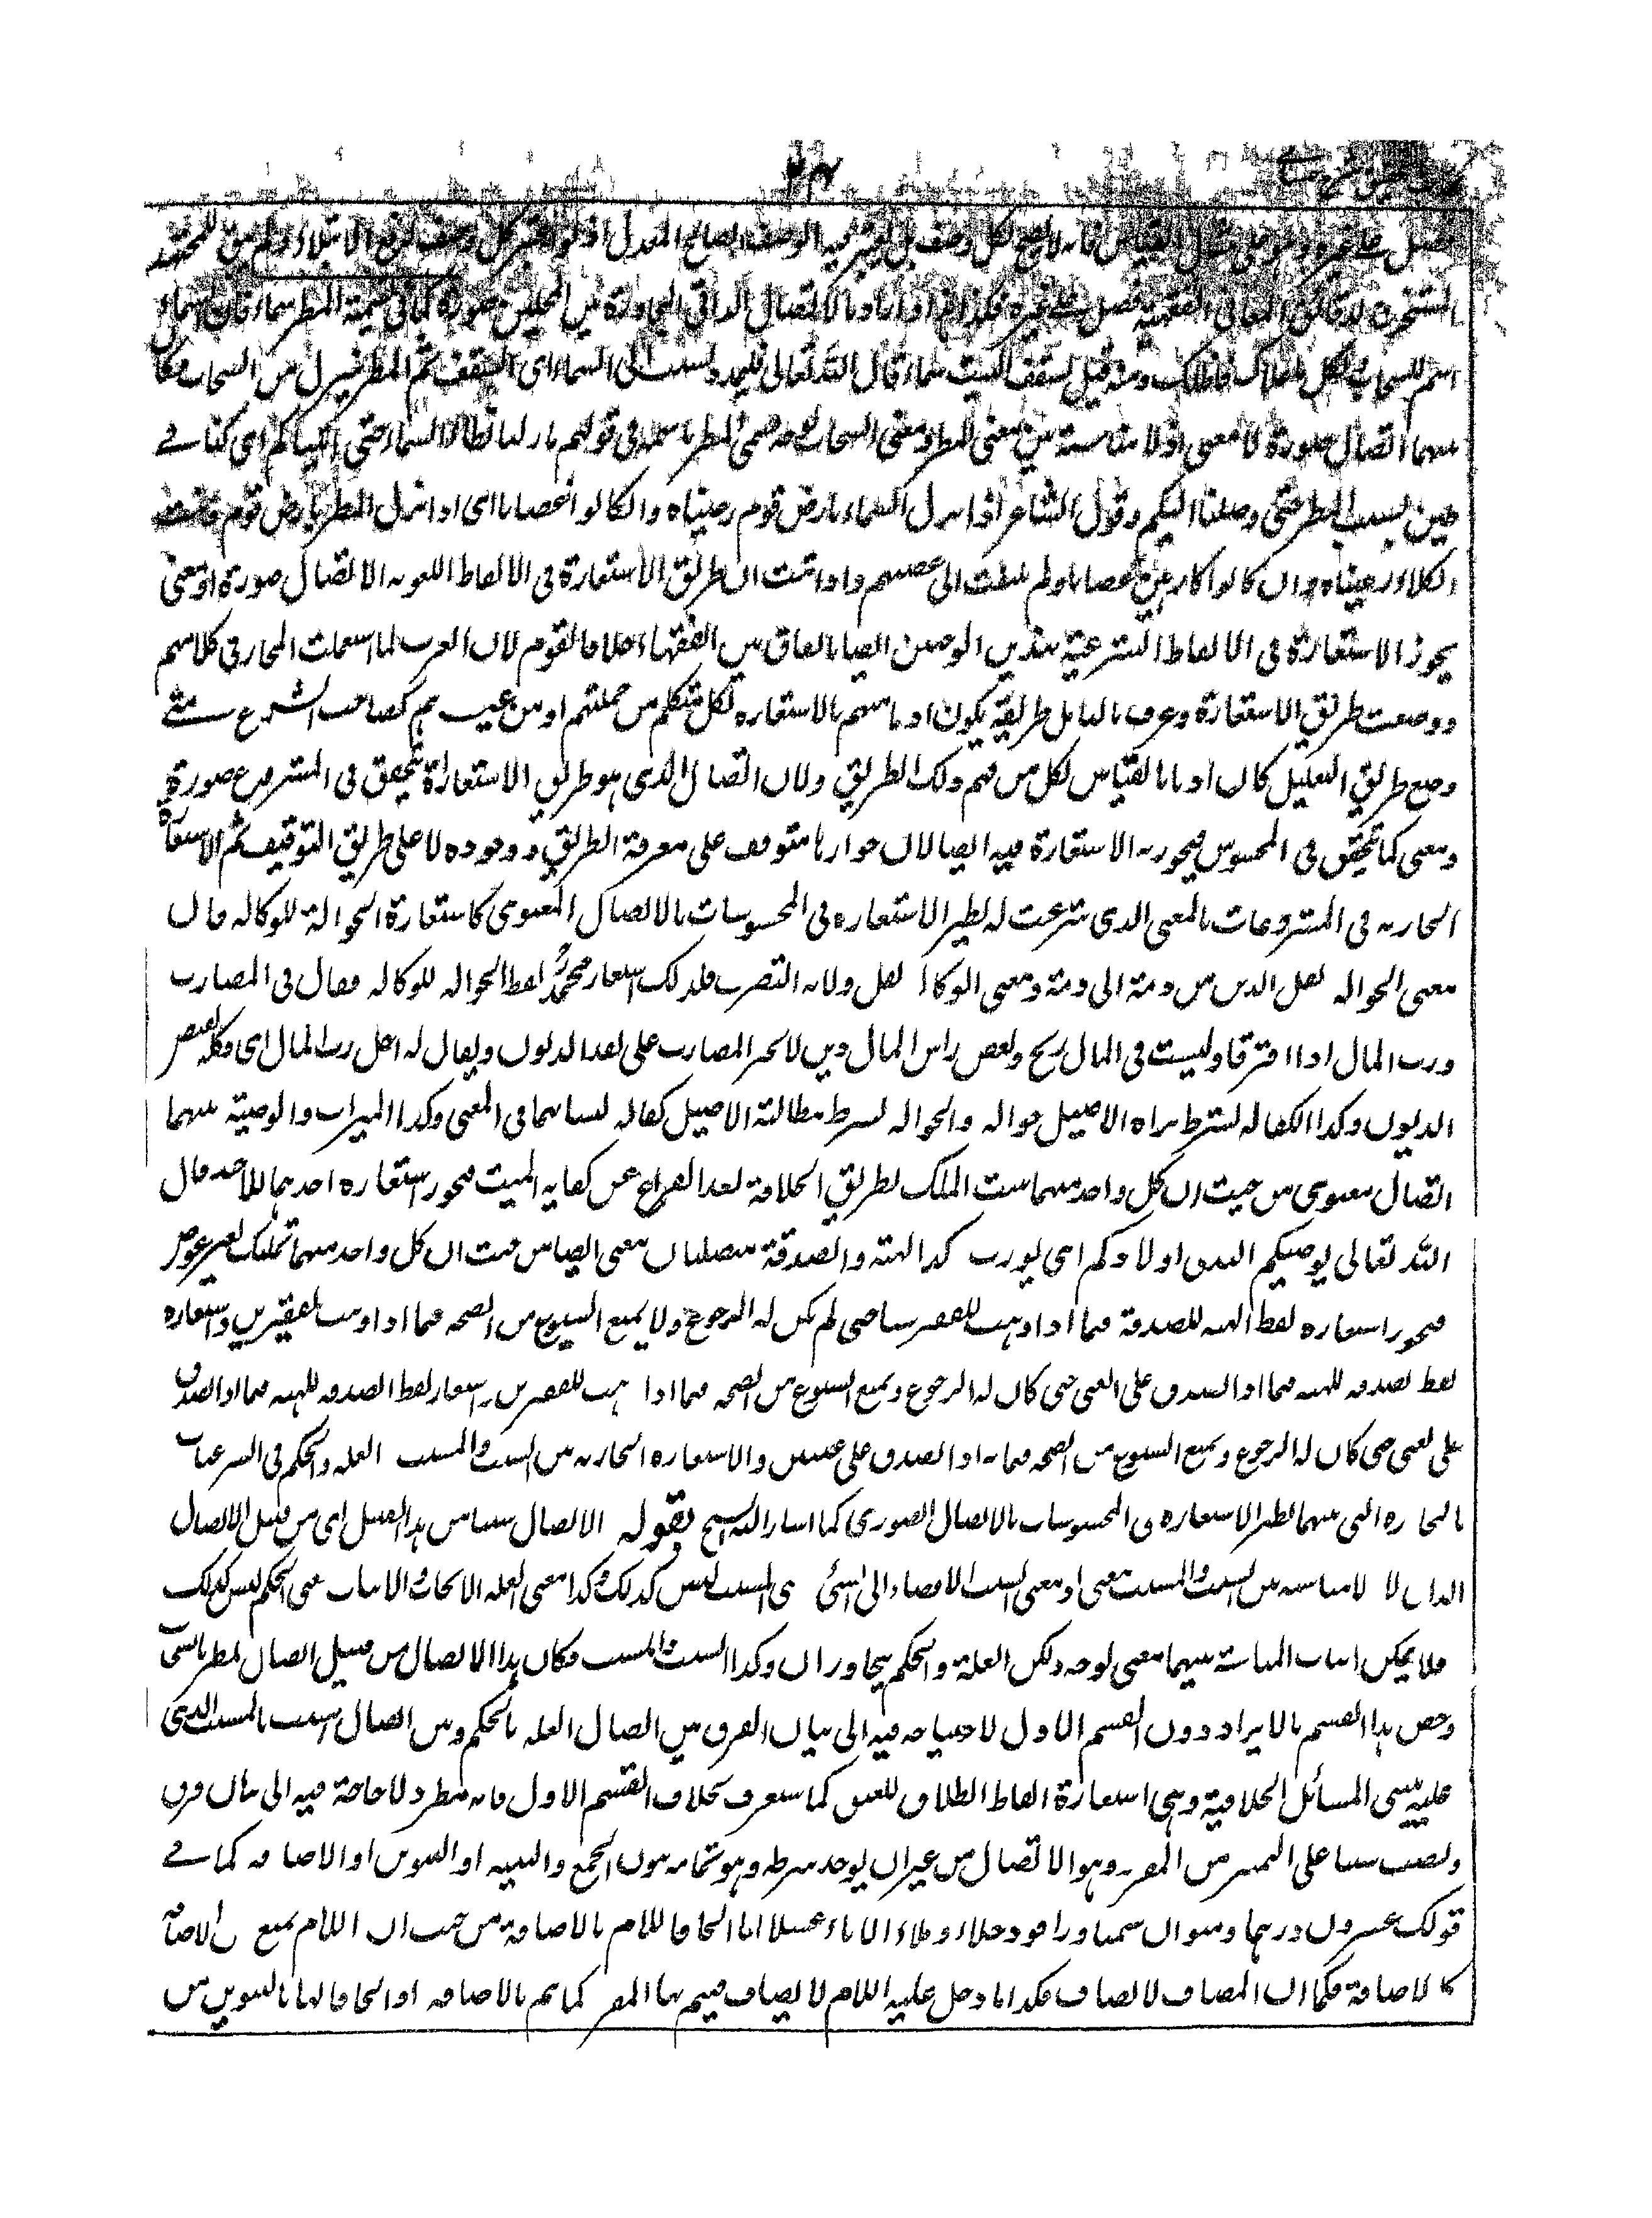 فضل على غيره وهو على مثال القياس فانه لا يصح لكل وصف بل يعتبر فيه الوصف الصالح المعدل اذ لو اعتبر كل وصف لرفع الابتلاء ولم يبق للمجتهد
المستخرج لدقائق المعانى الفقهية فضل على غيره فكذا هذا واما الاتصال الذاتى المجاورة بين المحلين صورة كما فى تسمية المطر سماء فان السماء
اسم للسحاب ومنه قيل لسقف البيت سماء قال الله تعالى فليمدد بسبب الى السماء اى السقف ثم المطر ينزل من السحاب فكان
بينهما اتصال صورة لا معنى اذ لا مناسبة بين معنى المطر ومعنى السحاب بوجه فسمى المطر باسمه فى قولهم ما زلنا نطأ السماء حتى اتيناكم اى كنا فے
طين بسبب المطر حتى وصلنا اليكم وقول الشاعر اذا نزل السماء بارض قوم رعيناه وان كانوا غضابا اى اذا نزل المطر بارض قوم
الكلاء رعيناه وان كانوا كارهين غضابا ولم نلتفت الى غضبهم واذا ثبت ان طريق الاستعارة فى الالفاظ اللغوية الاتصال صورة او معنى
يجوز الاستعارة فى الالفاظ الشرعية بهذين الوجهين ايضا باتفاق بين الفقهاء خلافا لقوم لان العرب لما استعملت المجاز فى كلامهم
ووضعت طريق الاستعارة وعرف بالتامل طريقه يكون اذنا منهم بالاستعارة لكل متكلم من جملتهم او من غيرهم كصاحب الشرع متى
وضع طريق التعليل كان اذنا بالقياس لكل من فهم ذلك الطريق ولان اتصال الذى هو طريق الاستعارة يتحقق فى المشروع صورة
ومعنى كما تحقق فى المحسوس فيجوز به الاستعارة فيه ايضا لان جوازها متوقف على معرفة الطريق ووجوده لا على طريق التوقيف ثم الاستعارة
الجارية فى المشروعات بالمعنى الذى شرعت له نظير الاستعارة فى المحسوسات بالاتصال المعنوى كاستعارة الحوالة للوكالة فان
معنى الحوالة نقل الدين من ذمة الى ذمة ومعنى الوكالة نقل ولاية التصرف فلذلك استعار محمد لفظ الحوالة للوكالة فقال فى المضارب
ورب المال اذا افترقا وليست فى المال ربح وبعض راس المال دين لا يجبر المضارب على نقد الديون ويقال له احل رب المال اى وكله بقبض
الديون وكذا الكفالة بشرط براءة الاصيل حوالة والحوالة بشرط مطالبة الاصيل كفالة لتشابهما فى المعنى وكذا الميراث والوصية بينهما
اتصال معنوى من حيث ان كل واحد منهما يثبت الملك بطريق الخلافة بعد الفراغ عن كفاية الميت فيجوز استعارة احدهما للآخر قال
الله تعالى يوصيكم الله فى اولادكم اى يورث كذا الهبة والصدقة متصلتان معنى ايضا من حيث ان كل واحد منهما تمليك بغير عوض
فيجوز استعارة لفظ الهبة للصدقة فيما اذا وهب للفقير شيئا حتى لم يكن له الرجوع ولا يمنع الشيوع من الصحة فيما اذا وهب لفقيرين واستعارة
لفظ الصدقة للهبة فيما اذا تصدق على الغنى حتى كان له الرجوع ويمنع الشيوع من الصحة فيما اذا وهب للفقيرين واستعار لفظ الصدقة للهبة فيما اذا تصدق
على الغنى حتى كان له الرجوع ويمنع الشيوع من الصحة فيما اذا تصدق على غنيين والاستعارة الجارية بين السبب والمسبب العلة والحكم فى الشرعيات
بالمجاورة التى بينهما نظير الاستعارة فى المحسوسات بالاتصال الصورى كما اشار اليه الشيخ بقوله الاتصال سببا من هذا القبيل اى من قبيل الاتصال
الذاتى لا لا مناسبة بين السبب والمسبب معنى اذ معنى السبب الافضاء الى الشئ ومعنى المسبب ليس كذلك وكذا معنى العلة الايجاب والاثبات ومعنى الحكم ليس كذلك
فلا يمكن اثبات المناسبة بينهما معنى بوجه ولكن العلة والحكم يتجاوران وكذا السبب والمسبب فكان هذا الاتصال من قبيل اتصال المطر بالسحاب
وخص هذا القسم بالايراد دون القسم الاول لاحتياجه فيه الى بيان الفرق بين اتصال العلة بالحكم وبين اتصال السبب بالمسبب الذى
عليه يبتنى المسائل الخلافية وهى استعارة الفاظ الطلاق للعتق كما ستعرف بخلاف القسم الاول فانه مطرد لا حاجة فيه الى بيان فرق
ونصب سببا على التمييز من المفرد وهو الاتصال من غير ان يوجد شرطه وهو تمامه بنون الجمع والتثنية او التنوين او الاضافة كما فے
قولك عشرون درهما ومنوان سمنا وراقود خلا وملاء الاناء عسلا الحاقا للام بالاضافة من حيث ان اللام يمنع من الاضافة
كالاضافة فكما ان المضاف لا يضاف فكذا ما دخل عليه اللام لا يضاف فيتم بها المفرد كما تم بالاضافة او الحاقا لها بالتنوين من